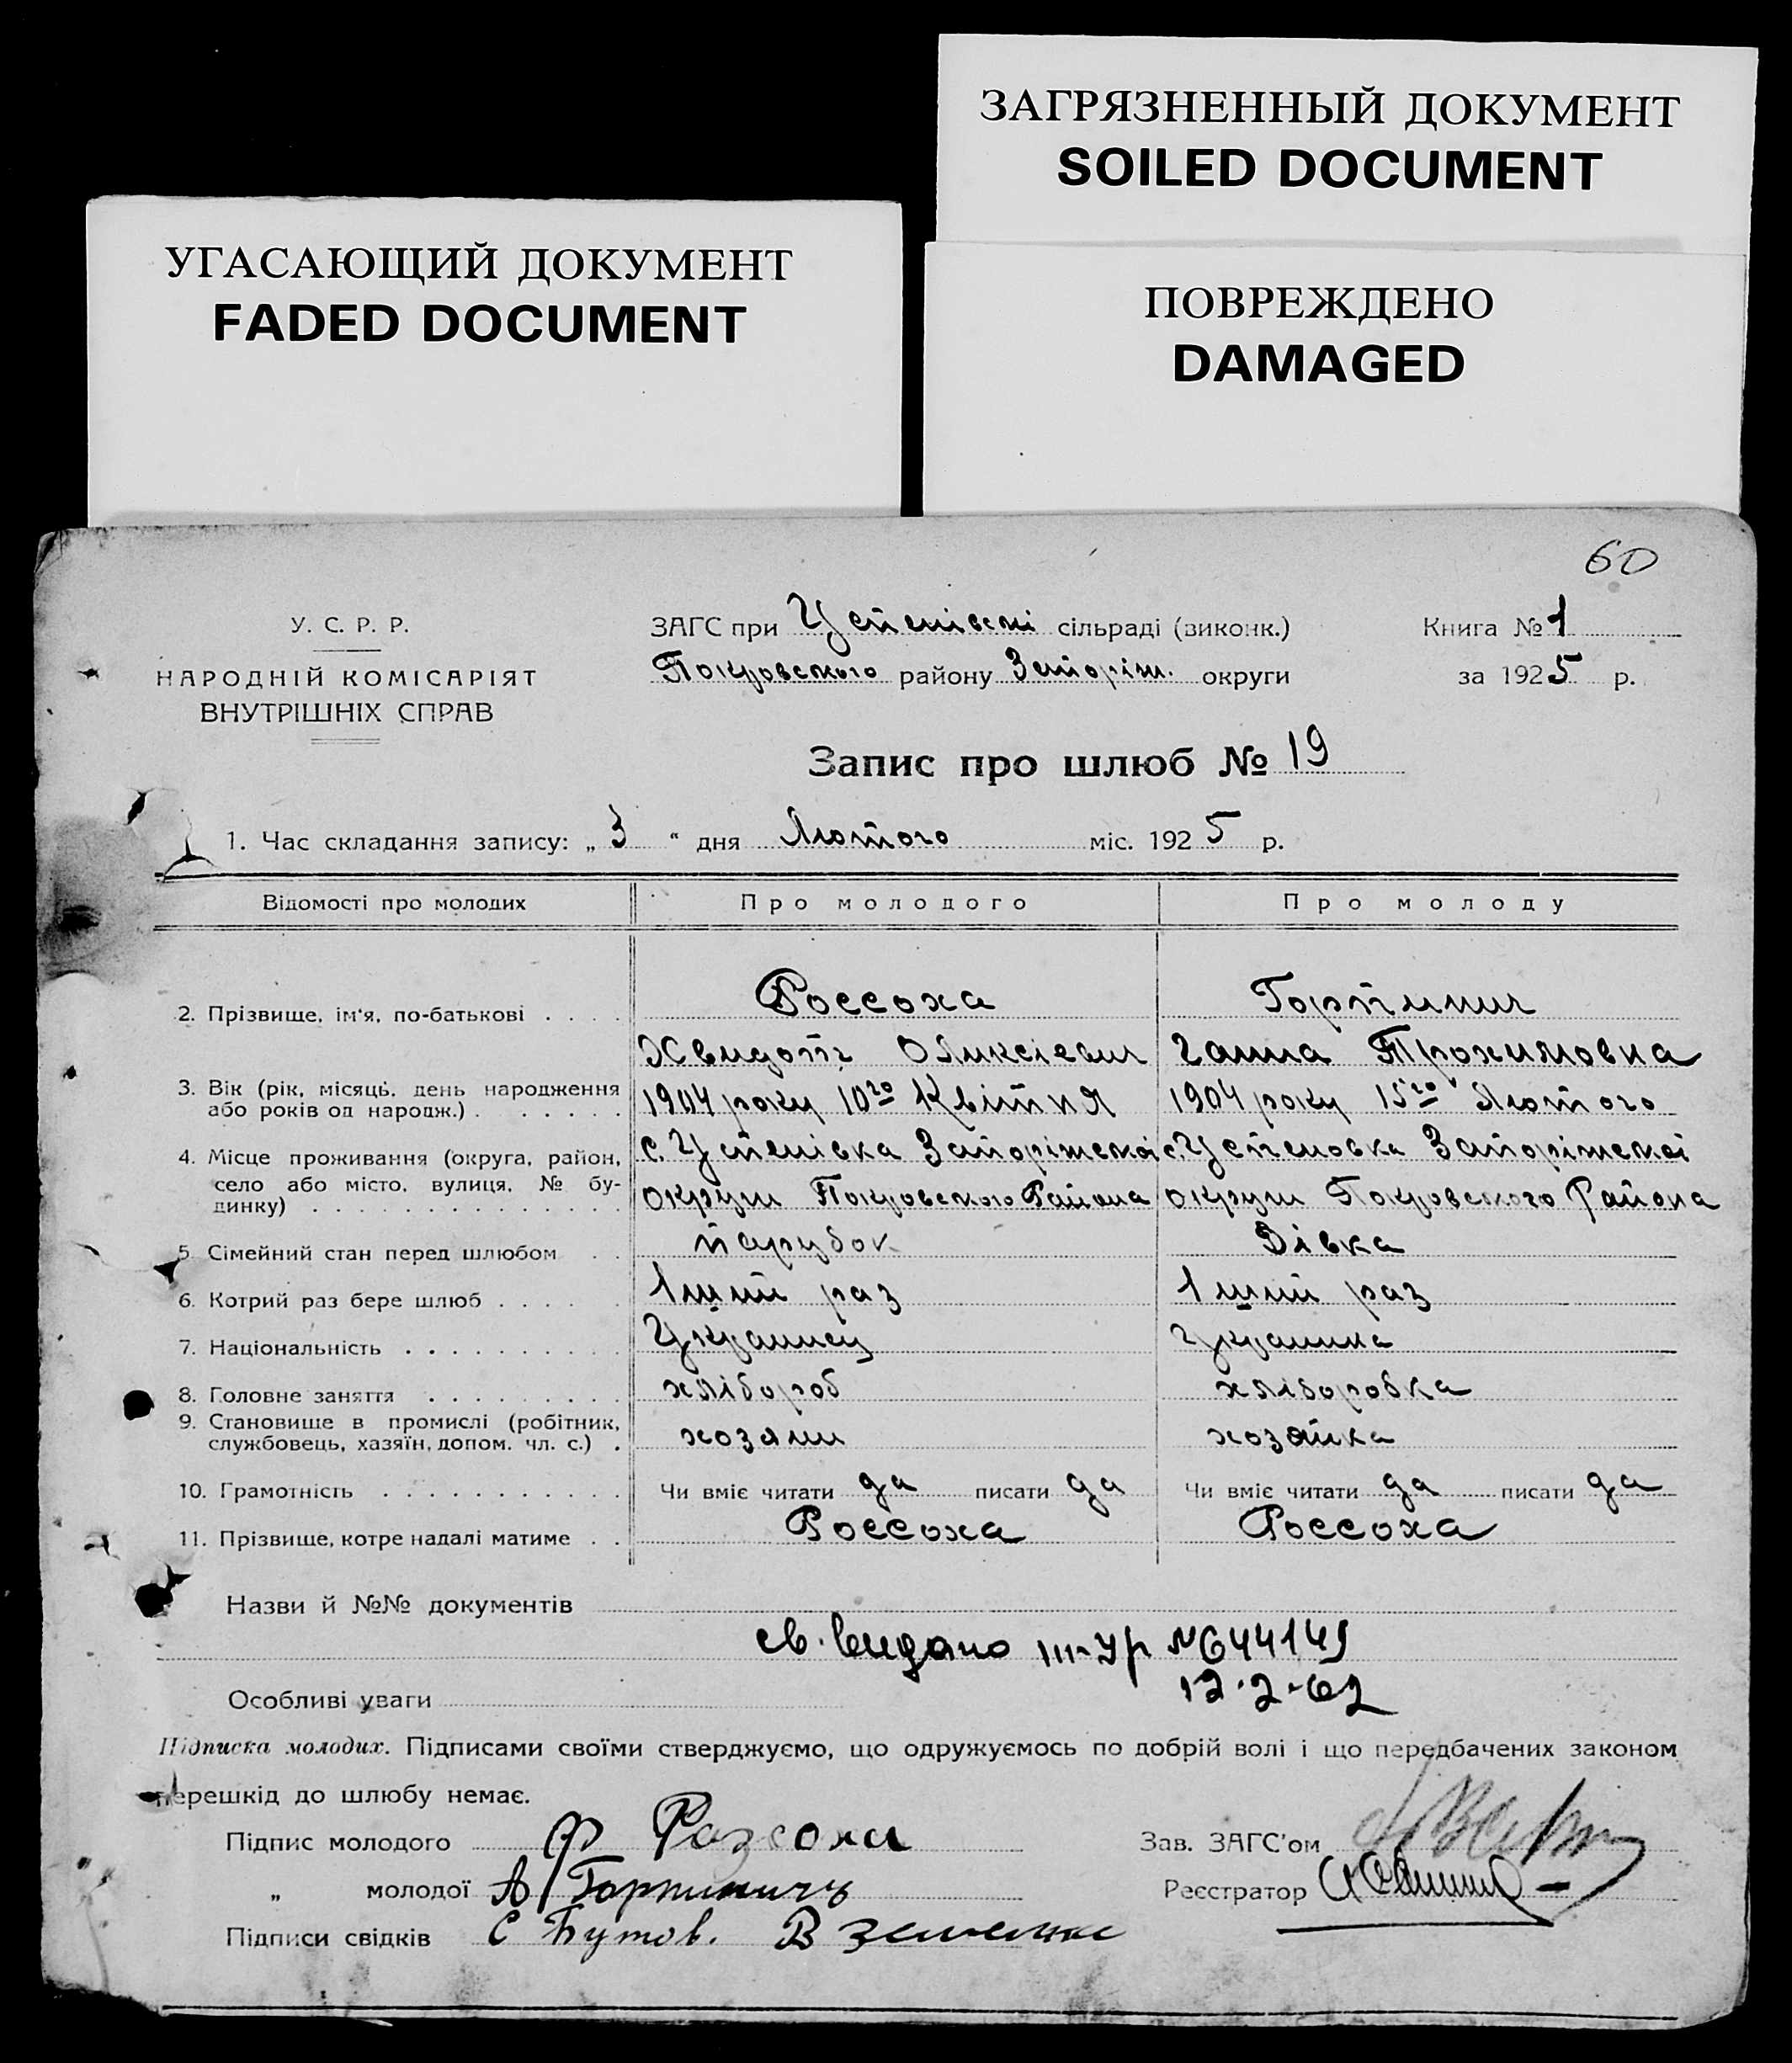 ЗАГРЯЗНЕННЫЙ ДОКУМЕНТ
SOILED DOCUMENT
УГАСАЮЩИЙ ДОКУМЕНТ
FADED DOCUMENT
ПОВРЕЖДЕНО
DAMAGED
60
У. С. Р. Р.
НАРОДНІЙ КОМІСАРІЯТ
ВНУТРІШНІХ СПРАВ
ЗАГС при Успенівскі сільраді (виконк.)
Покровского району Запоріж. округи
Книга № 1
за 1925 р.
Запис про шлюб № 19
1. Час складання запису: „ 3 “ дня Лютого міс. 1925 р.
Відомості про молодих Про молодого Про молоду
2. Прізвище, ім'я, по-батькові . . . . Россоха Горпинич
Хведотъ Оликсіевич Ганна Трохимовна
3. Вік (рік, місяць, день народження або років од народж.) . . . . . . 1904 року 10го Квітня 1904 року 15го Лютого
4. Місце проживання (округа, район, село або місто, вулиця, № будинку) . . . . . с. Успенівка Запоріжскоі с. Успеновка Запоріжскоі
округи Покровского Района округи Покровского Района
5. Сімейний стан перед шлюбом . . парубок Дівка
6. Котрий раз бере шлюб . . . . . . 1ший раз 1ший раз
7. Національність . . . . . . . . . . Украинец Украинка
8. Головне заняття . . . . . . . . . хлібороб хліборобка
9. Становище в промислі (робітник, службовець, хазяїн, допом. чл. с.) . хозяин хозяйка
10. Грамотність . . . . . . . . . . . Чи вміє читати да писати да Чи вміє читати да писати да
11. Прізвище, котре надалі матиме . . Россоха Россоха
Назви й №№ документів
св. видано III-УР №644149
12.2-62
Особливі уваги
Підписка молодих. Підписами своїми стверджуємо, що одружуємось по добрій волі і що передбачених законом
перешкід до шлюбу немає.
Підпис молодого Ф Разсоха
Зав. ЗАГС'ом
„ молодої А Горпиничъ
Реєстратор
Підписи свідків С Бутов. В